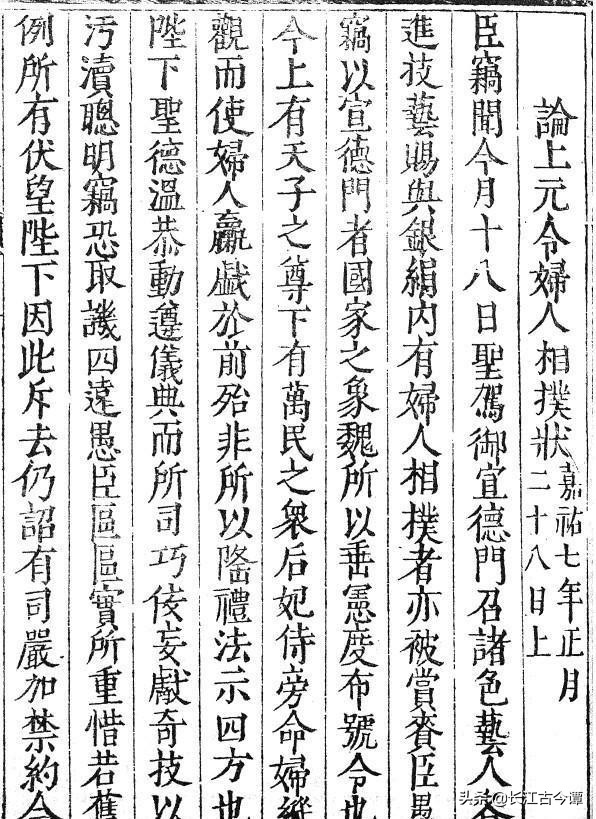 論上元令婦人相撲狀
嘉祐七年正月
二十八日上
臣竊聞今月十八日聖駕御宣德門召諸色藝人各
進技藝賜與銀絹內有婦人相撲者亦被賞賚臣愚
竊以宣德門者國家之象魏所以垂憲度布號令也
今上有天子之尊下有萬民之衆后妃侍旁命婦縱
觀而使婦人臝戲於前殆非所以隆禮法示四方也
陛下聖德溫恭動遵儀典而所司巧佞妄獻奇技以
汚瀆聰明竊恐取譏四遠愚臣區區實所重惜若舊
例所有伏望陛下因此斥去仍詔有司嚴加禁約令
头条@长江古今谭